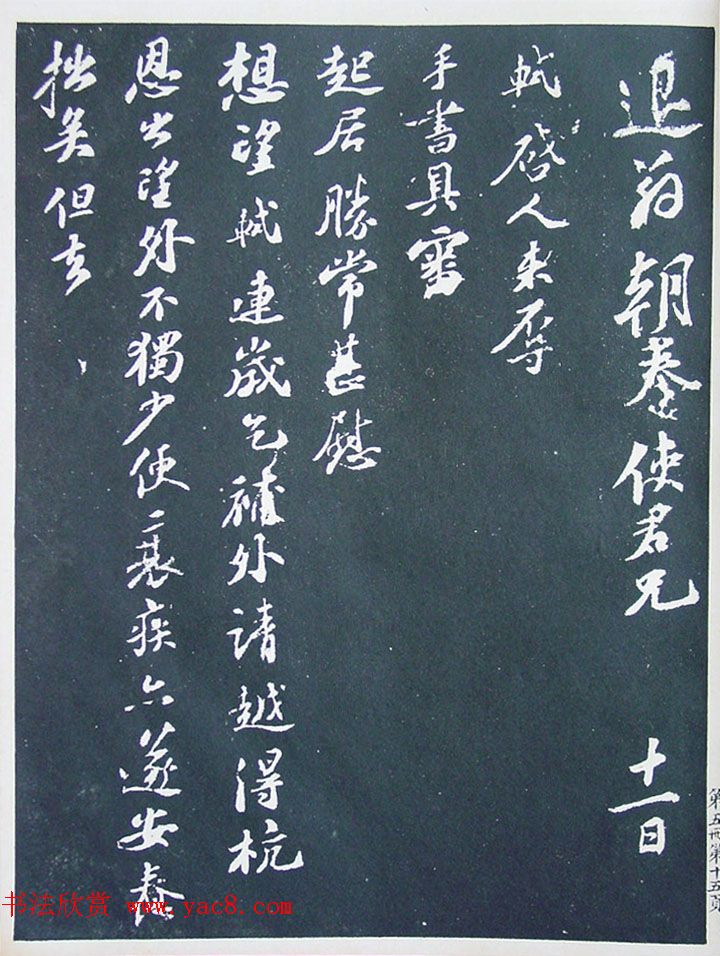 退翁朝奉使君兄 十一日
軾啓人来辱
手書具審
起居勝常甚慰
想望軾連歲乞補外請越得杭
恩出望外不獨少便衰疾亦遂安養
拙矣但去
第五冊第十五頁
书法欣赏 www.yac8.com